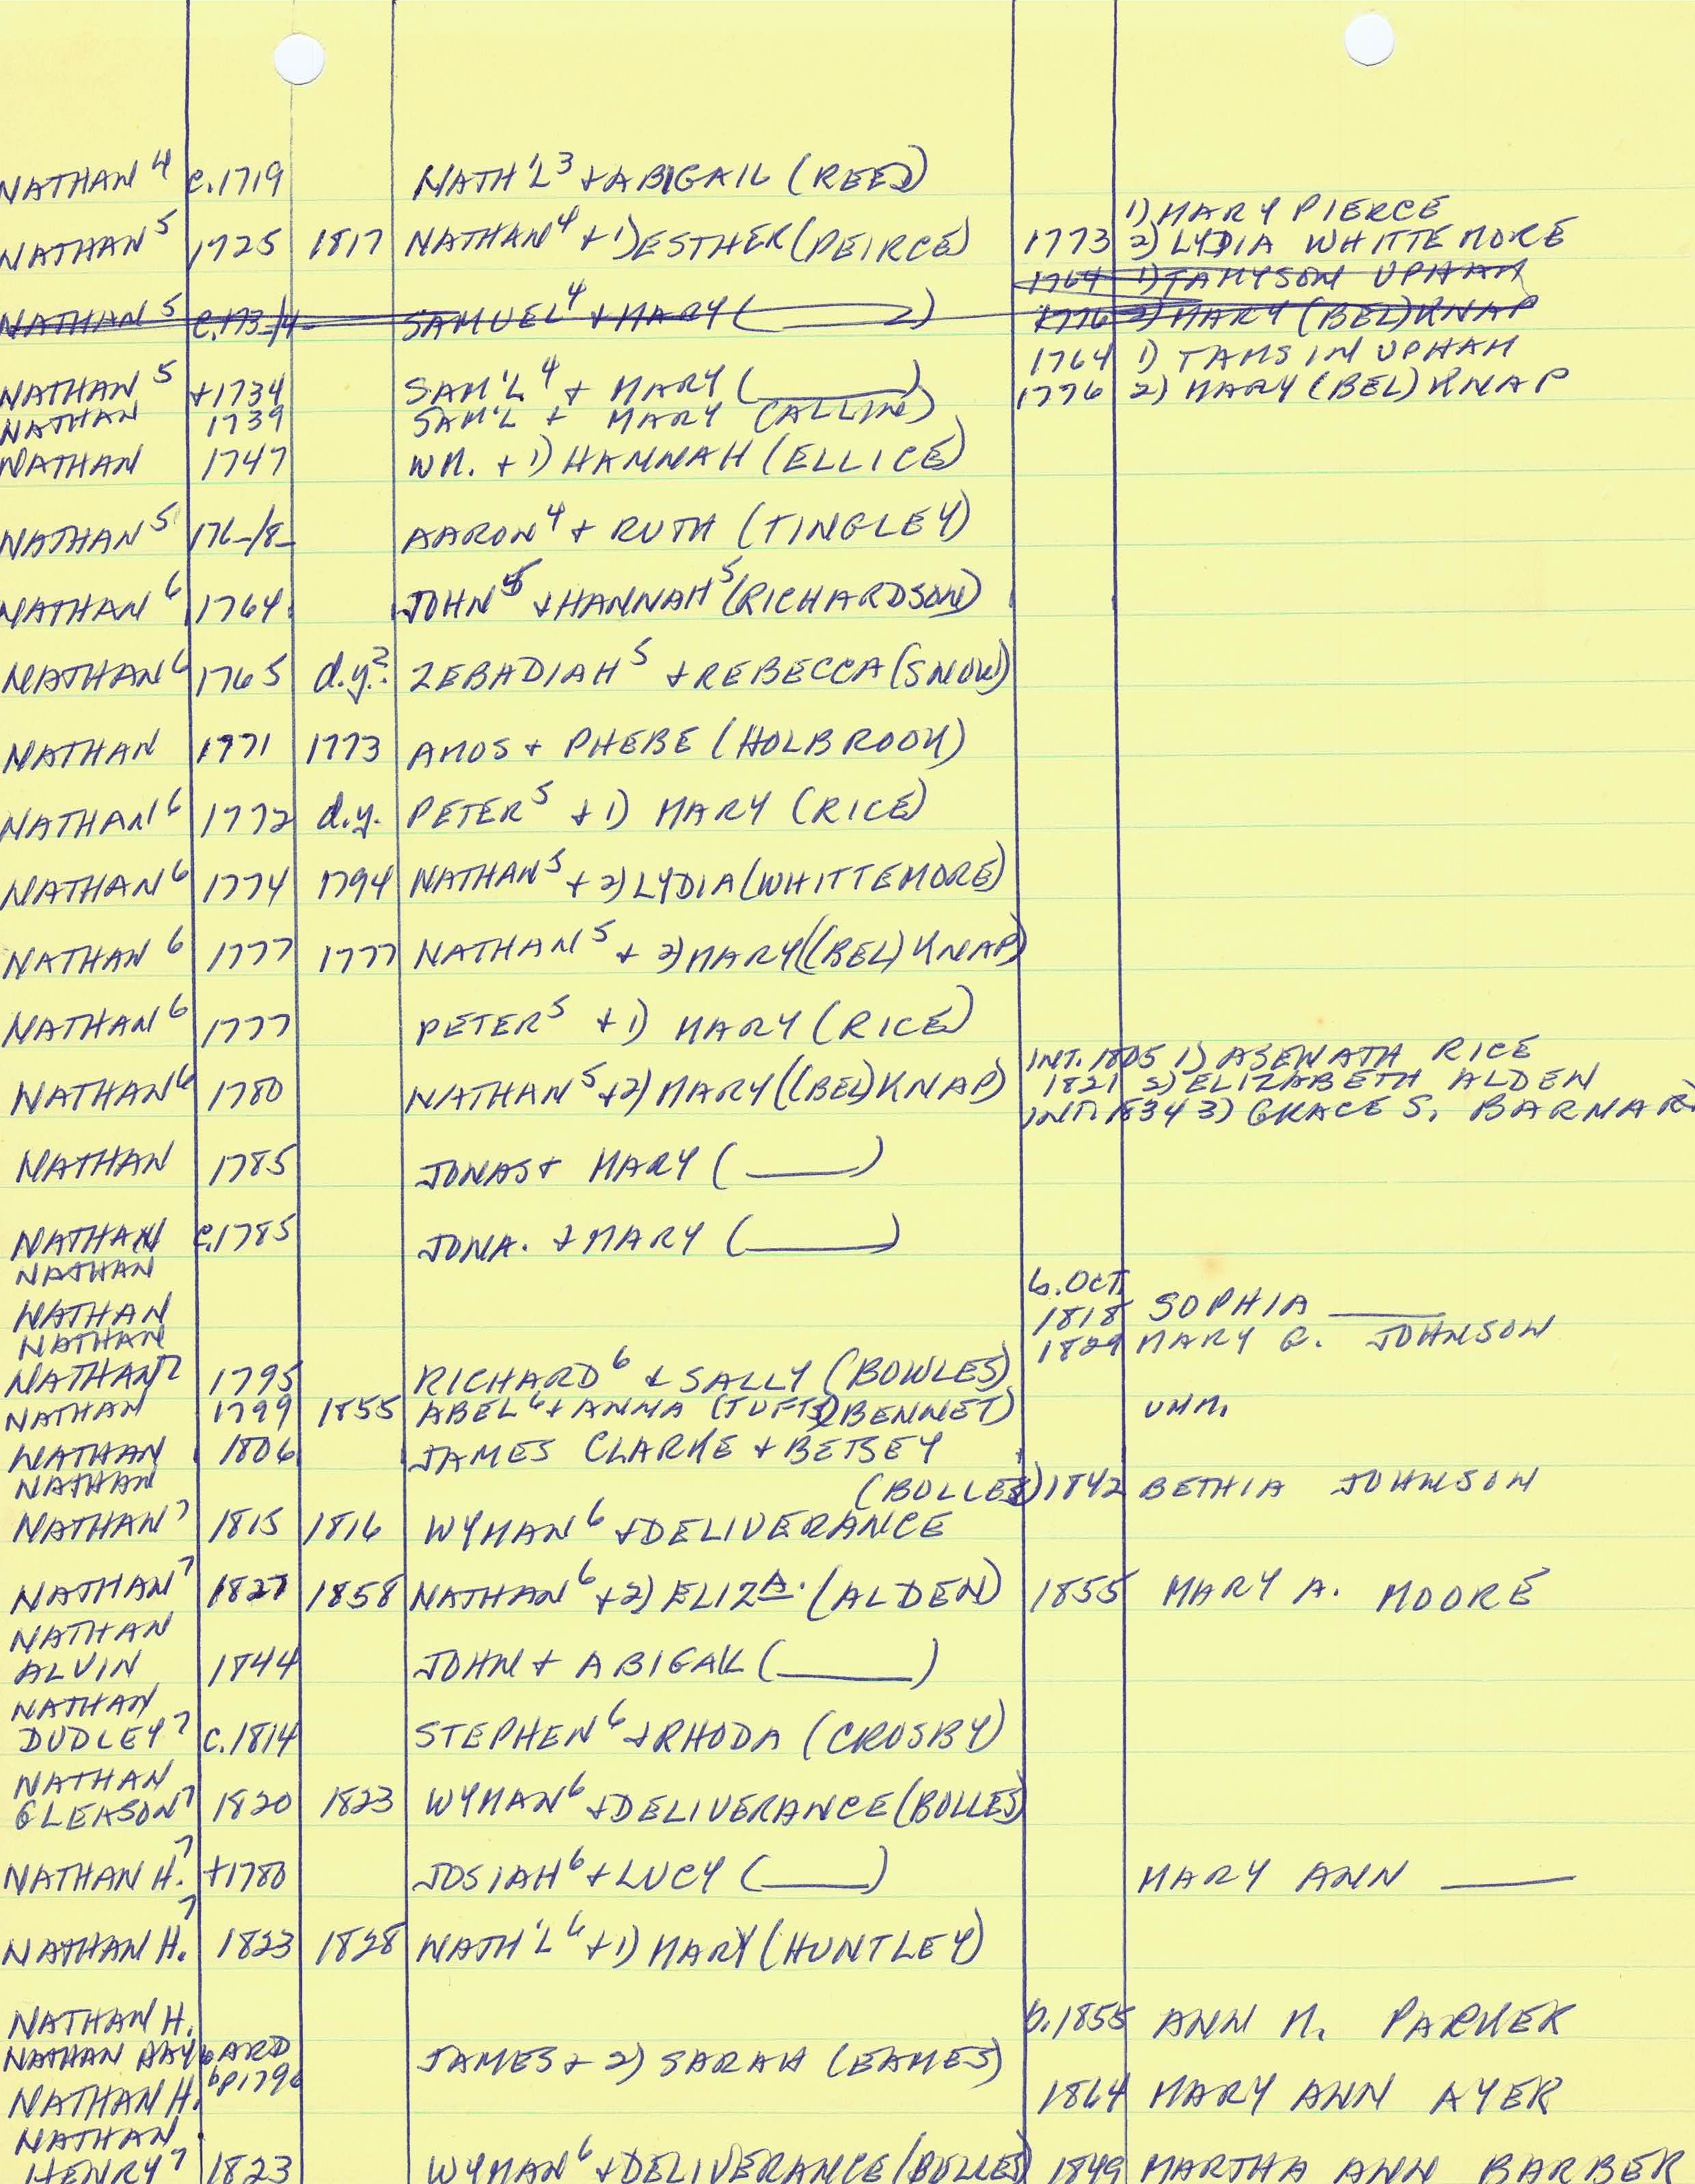 NATHAN 4 c.1719 NATH'L 3 + ABIGAIL (REED)
1) MARY PIERCE
NATHAN 5 1725 1817 NATHAN 4 + 1) ESTHER (PEIRCE) 1773 2) LYDIA WHITTEMORE
1764 1) TAMYSON UPHAM
NATHAN 5 c.173-/4- SAMUEL 4 + MARY (____) 1776 2) MARY (BEL)KNAP
1764 1) TAMSIN UPHAM
NATHAN 5 +1734 SAM'L 4 + MARY (____) 1776 2) MARY (BEL)KNAP
NATHAN 1739 SAM'L + MARY (CALLIN)
NATHAN 1747 WM. + 1) HANNAH (ELLICE)
NATHAN 5 176-/8- AARON 4 + RUTH (TINGLEY)
NATHAN 6 1764 JOHN 5 + HANNAH 5 (RICHARDSON)
NATHAN 6 1765 d.y.? ZEBADIAH 5 + REBECCA (SNOW)
NATHAN 1771 1773 AMOS + PHEBE (HOLBROOK)
NATHAN 6 1772 d.y. PETER 5 + 1) MARY (RICE)
NATHAN 6 1774 1794 NATHAN 5 + 2) LYDIA (WHITTEMORE)
NATHAN 6 1777 1777 NATHAN 5 + 2) MARY ((BEL)KNAP)
NATHAN 6 1777 PETER 5 + 1) MARY (RICE)
INT. 1805 1) ASENATH RICE
NATHAN 6 1780 NATHAN 5 + 2) MARY ((BEL)KNAP) 1821 2) ELIZABETH ALDEN
INT. 1834 3) GRACE S. BARNAR
NATHAN 1785 JONAS + MARY (____)
NATHAN c.1785 JONA. + MARY (____)
NATHAN
6. OCT.
NATHAN 1818 SOPHIA ____
NATHAN 1829 MARY G. JOHNSON
NATHAN 7 1795 RICHARD 6 + SALLY (BOWLES)
NATHAN 1799 1855 ABEL 6 + ANNA (TUFTS) BENNET) UNM.
NATHAN 1806 JAMES CLARKE + BETSEY
NATHAN (BOLLES) 1842 BETHIA JOHNSON
NATHAN 7 1815 1816 WYMAN 6 + DELIVERANCE
NATHAN 7 1827 1858 NATHAN 6 + 2) ELIZA. (ALDEN) 1855 MARY A. MOORE
NATHAN
ALVIN 1844 JOHN + ABIGAIL (____)
NATHAN
DUDLEY 7 c.1814 STEPHEN 6 + RHODA (CROSBY)
NATHAN
GLEASON 7 1820 1823 WYMAN 6 + DELIVERANCE (BOLLES)
NATHAN H. 7 +1780 JOSIAH 6 + LUCY (____) MARY ANN ____
NATHAN H. 7 1823 1828 NATH'L 6 + 1) MARY (HUNTLEY)
NATHAN H. b.1855 ANN M. PARKER
NATHAN HAYWARD JAMES + 2) SARAH (EAMES)
bp 1796
NATHAN H. 1864 MARY ANN AYER
NATHAN
HENRY 7 1823 WYMAN 6 + DELIVERANCE (BOLLES) 1849 MARTHA ANN BARBER